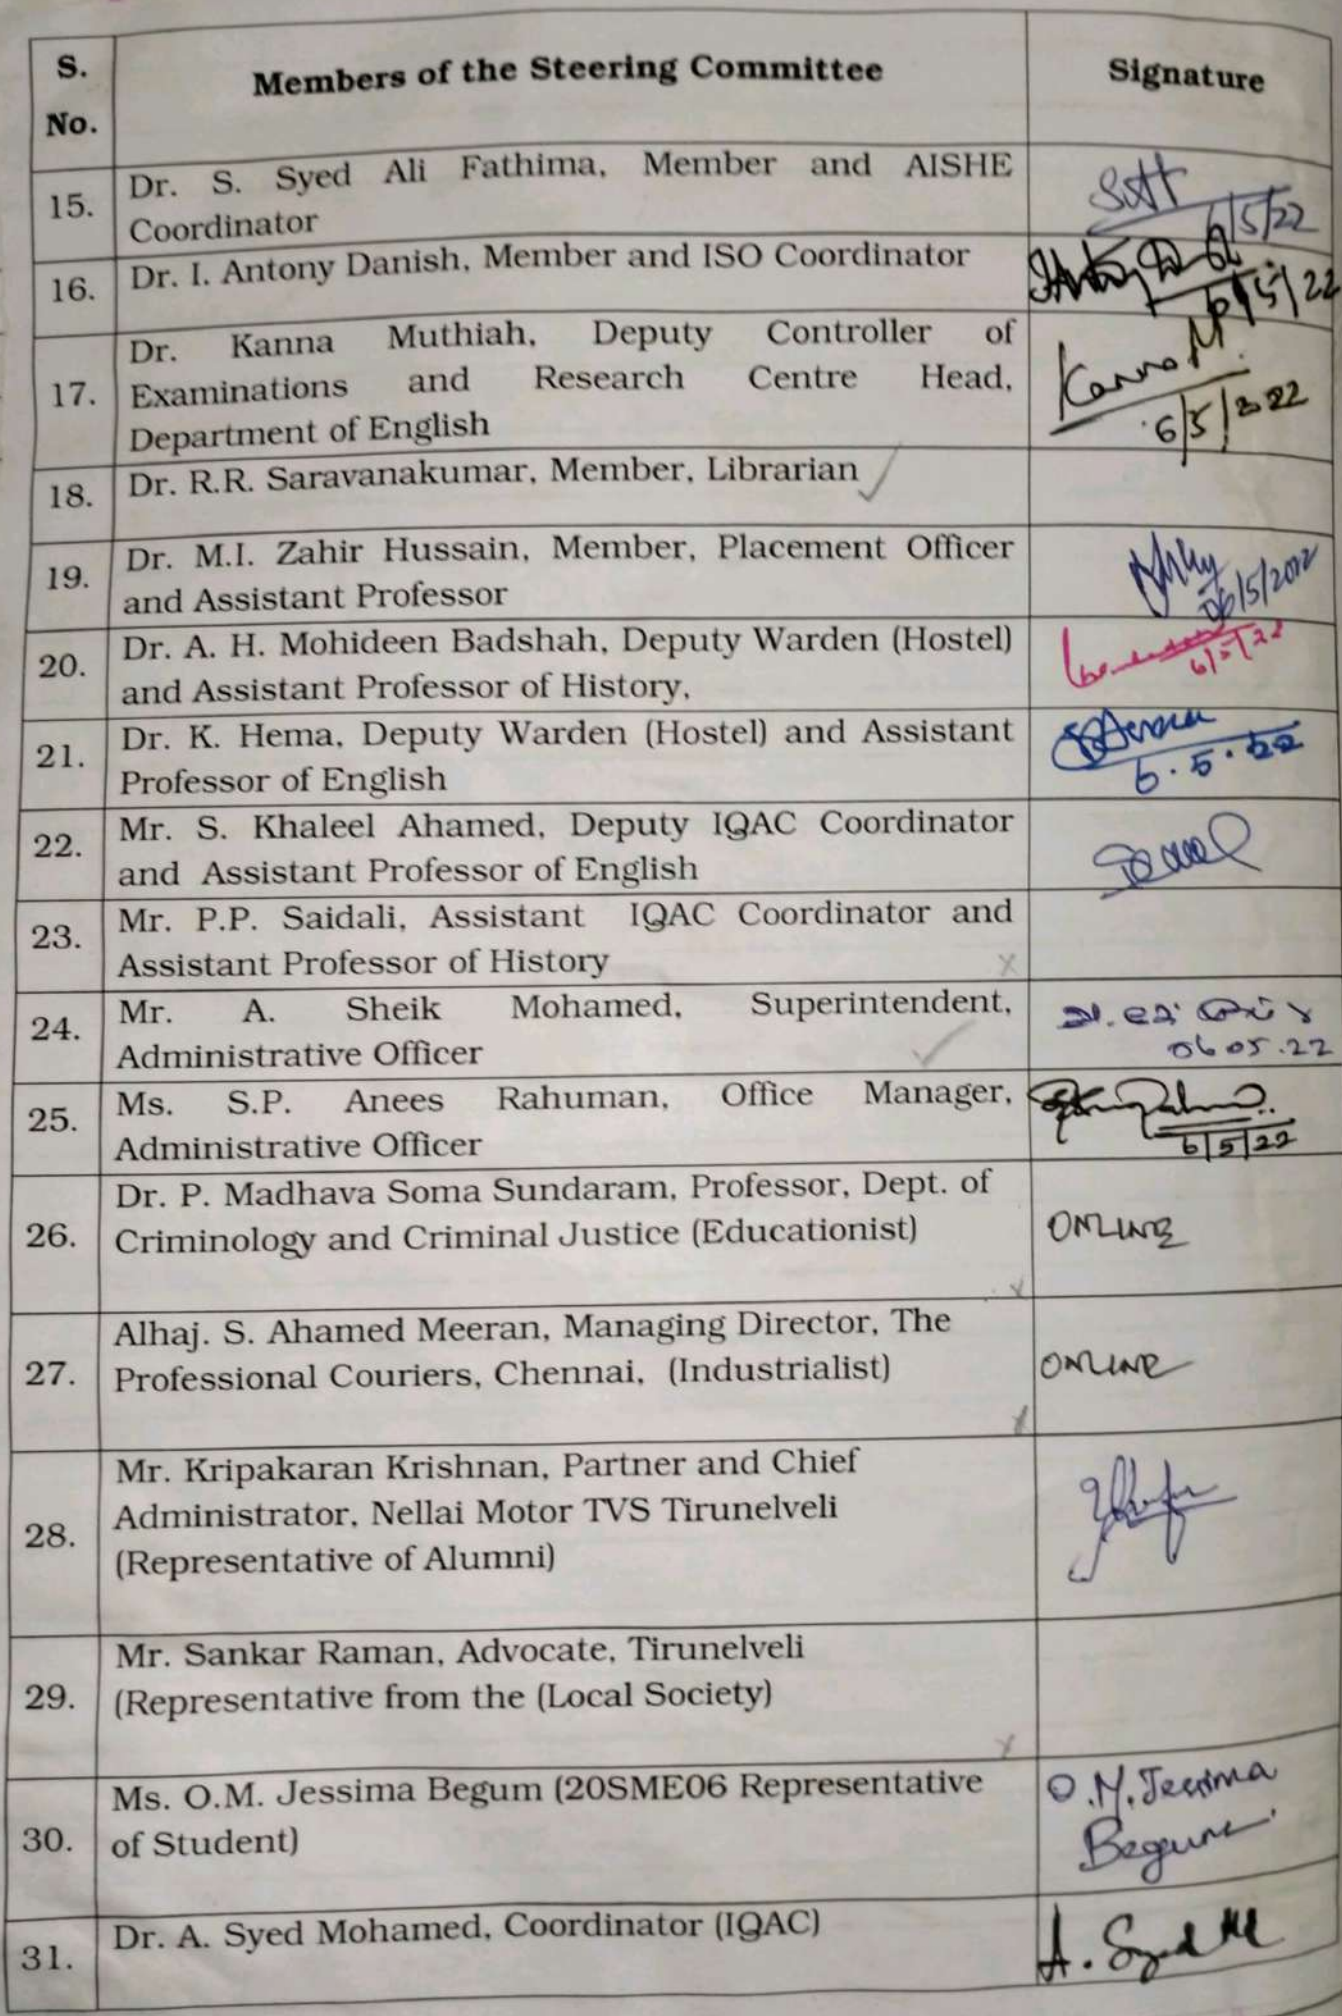 S.
No.
Members of the Steering Committee
Signature
15.
Dr. S. Syed Ali Fathima, Member and AISHE
Coordinator
6/5/22
16.
Dr. I. Antony Danish, Member and ISO Coordinator
6/5/22
17.
Dr. Kanna Muthiah, Deputy Controller of
Examinations and Research Centre Head,
Department of English
Kanna M
6/5/2022
18.
Dr. R.R. Saravanakumar, Member, Librarian
19.
Dr. M.I. Zahir Hussain, Member, Placement Officer
and Assistant Professor
06/5/2022
20.
Dr. A. H. Mohideen Badshah, Deputy Warden (Hostel)
and Assistant Professor of History,
6/5/22
21.
Dr. K. Hema, Deputy Warden (Hostel) and Assistant
Professor of English
6.5.22
22.
Mr. S. Khaleel Ahamed, Deputy IQAC Coordinator
and Assistant Professor of English
23.
Mr. P.P. Saidali, Assistant IQAC Coordinator and
Assistant Professor of History
24.
Mr. A. Sheik Mohamed, Superintendent,
Administrative Officer
06.05.22
25.
Ms. S.P. Anees Rahuman, Office Manager,
Administrative Officer
6/5/22
26.
Dr. P. Madhava Soma Sundaram, Professor, Dept. of
Criminology and Criminal Justice (Educationist)
ONLINE
27.
Alhaj. S. Ahamed Meeran, Managing Director, The
Professional Couriers, Chennai, (Industrialist)
ONLINE
28.
Mr. Kripakaran Krishnan, Partner and Chief
Administrator, Nellai Motor TVS Tirunelveli
(Representative of Alumni)
29.
Mr. Sankar Raman, Advocate, Tirunelveli
(Representative from the (Local Society)
30.
Ms. O.M. Jessima Begum (20SME06 Representative
of Student)
O.M. Jessima
Begum
31.
Dr. A. Syed Mohamed, Coordinator (IQAC)
A. Syed